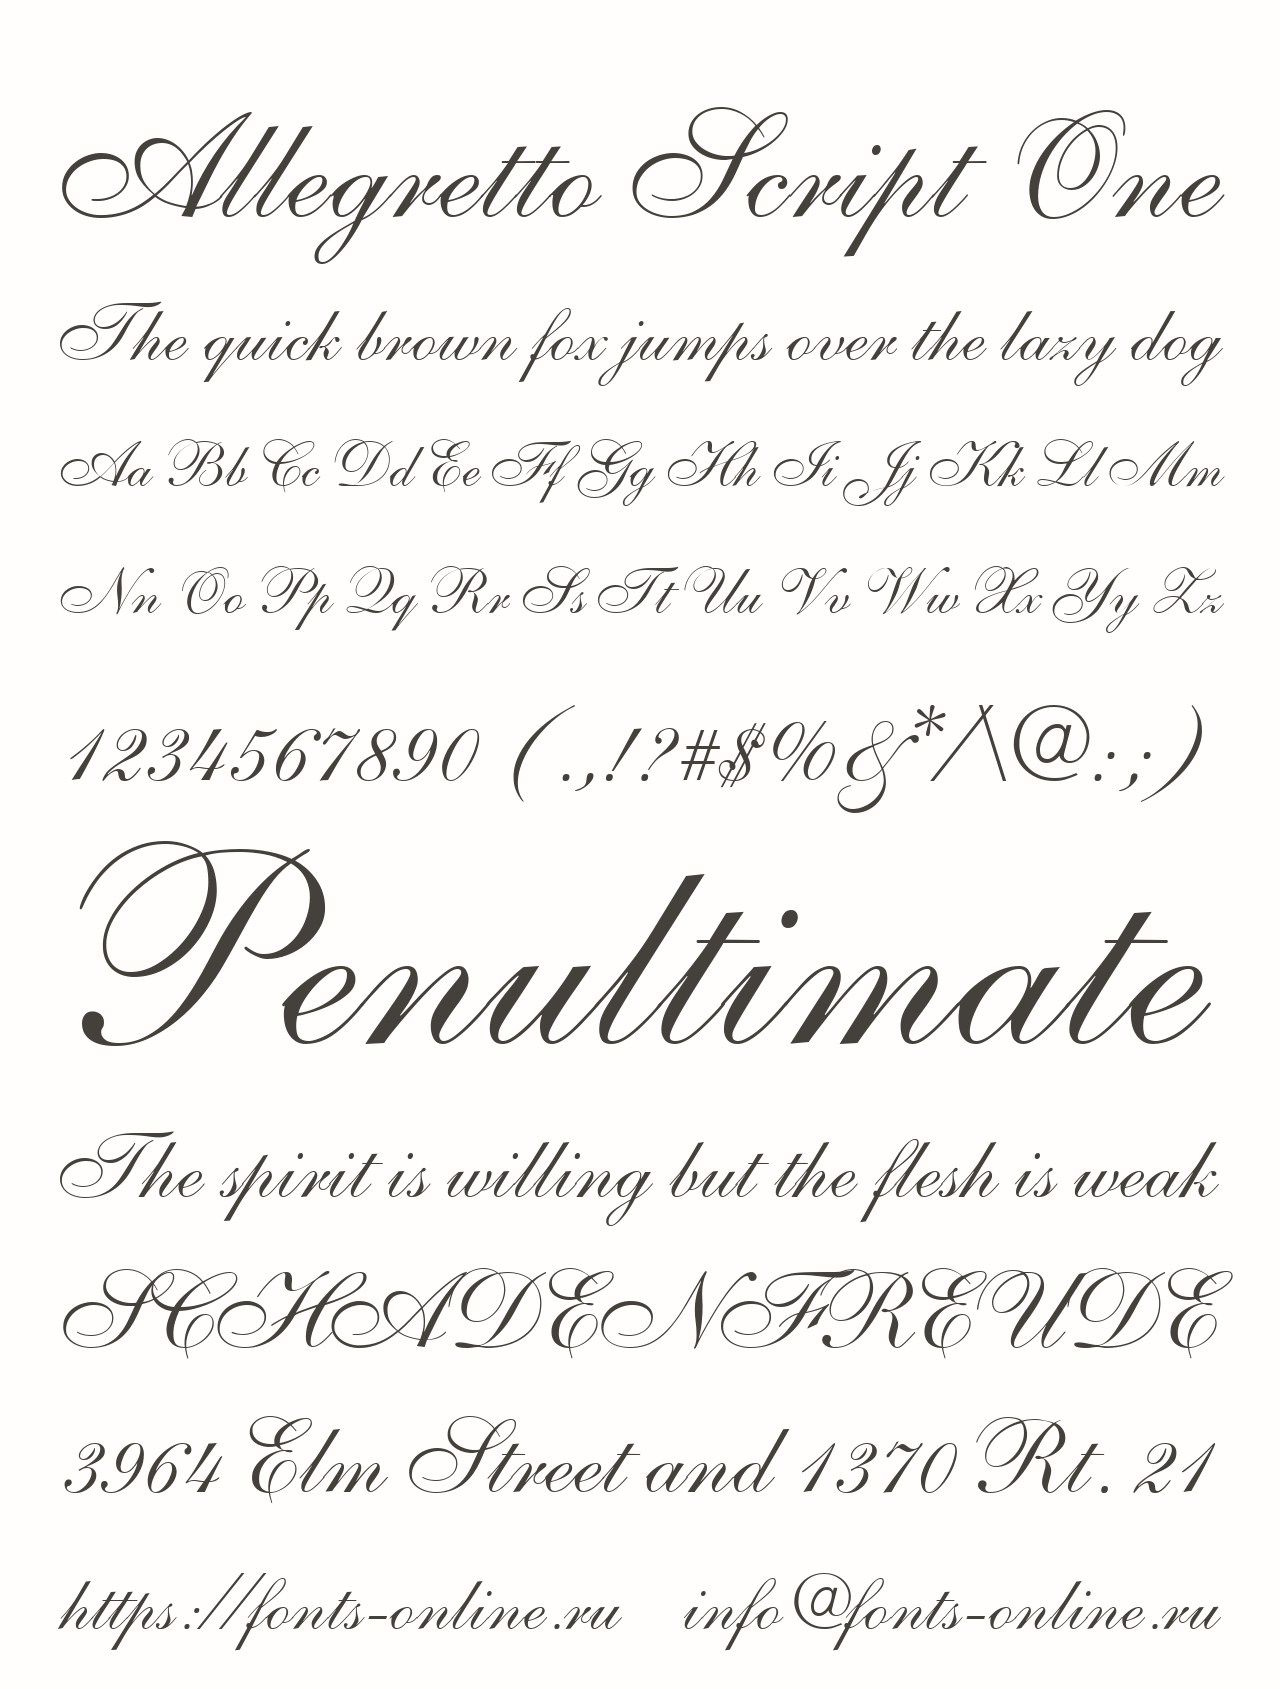 Allegretto Script One
The quick brown fox jumps over the lazy dog
Aa Bb Cc Dd Ee Ff Gg Hh Ii Jj Kk Ll Mm
Nn Oo Pp Qq Rr Ss Tt Uu Vv Ww Xx Yy Zz
1234567890 (.,!?#$%&*/\@:;)
Penultimate
The spirit is willing but the flesh is weak
SCHADENFREUDE
3964 Elm Street and 1370 Rt. 21
https://fonts-online.ru info@fonts-online.ru